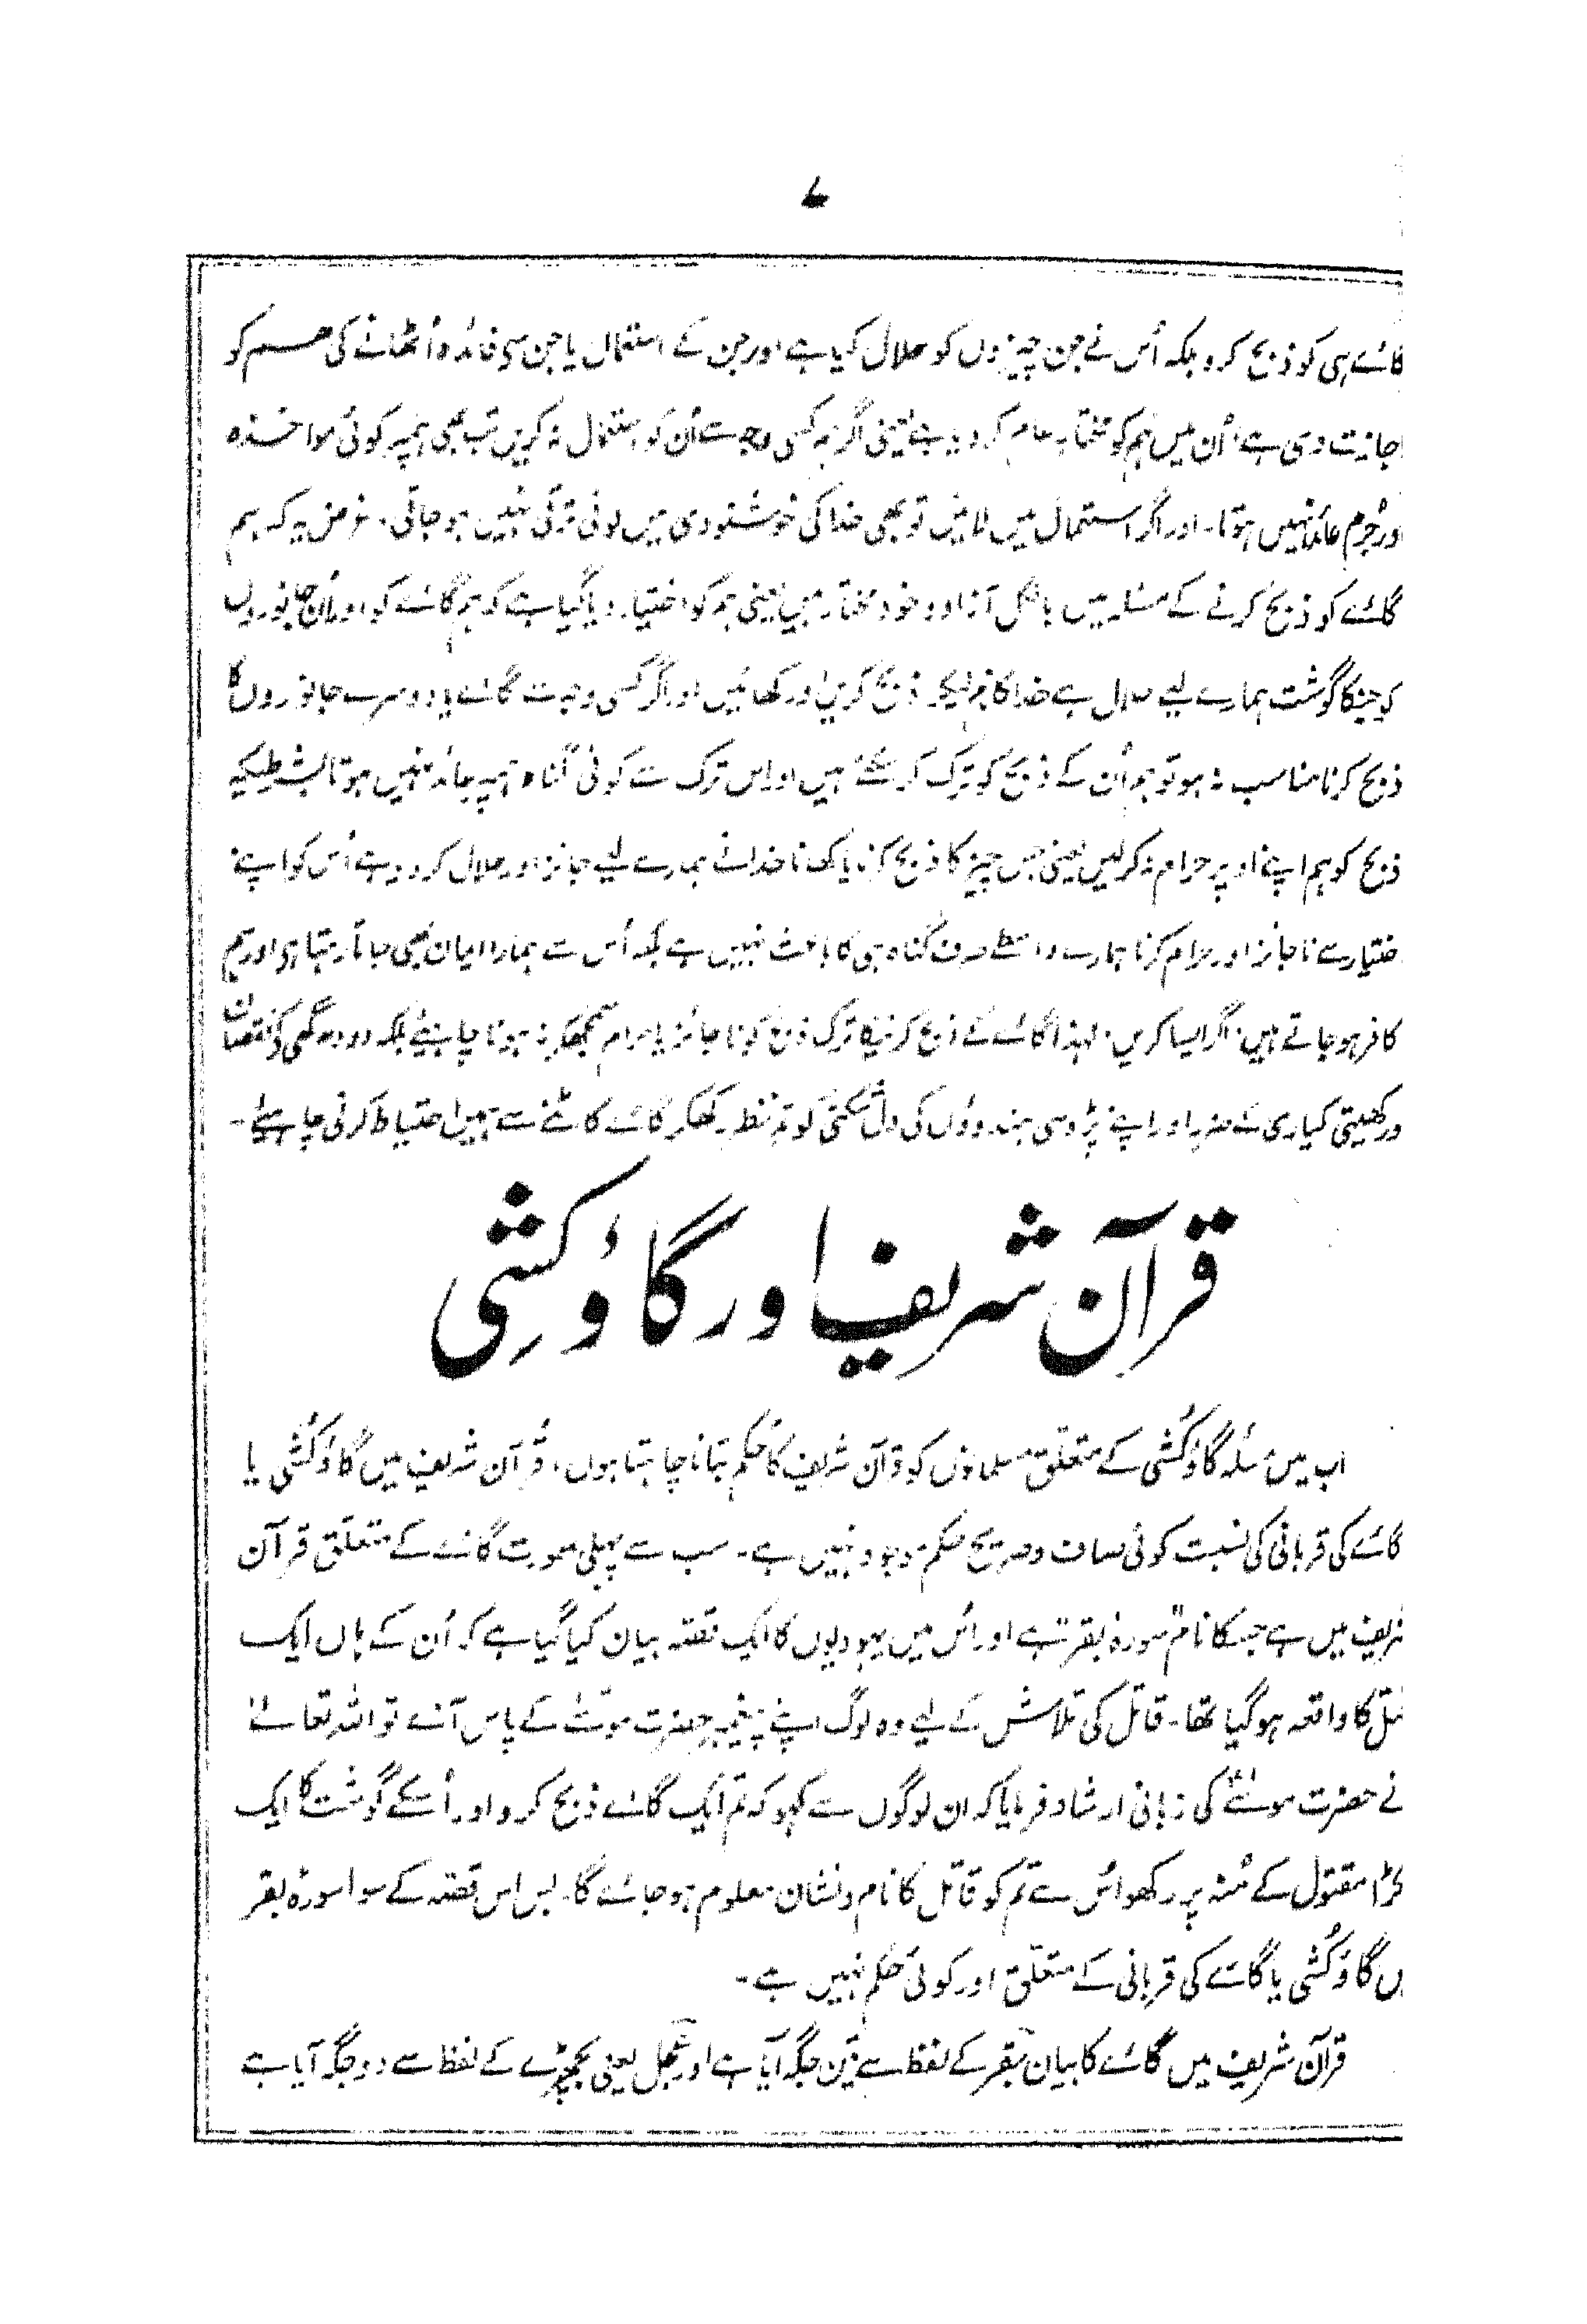 ۷
گائے ہی کو ذبح کرو بلکہ اُس نے جن چیزوں کو حلال کیا ہے اور جن کے استعمال یا جن سے فائدہ اُٹھانے کی ہم کو
اجازت دی ہے اُن میں ہم کو مختار عام کر دیا ہے یعنی اگر ہم کسی وجہ سے اُن کو استعمال نہ کریں تب بھی ہمپر کوئی مواخذہ
اور جُرم عائد نہیں ہوتا۔ اور اگر استعمال میں لائیں تو بھی خدا کی خوشنودی میں کوئی ترقی نہیں ہو جاتی۔ غرض یہ کہ ہم
گائے کو ذبح کرنے کے مسئلہ میں بالکل آزاد و خود مختار ہیں یعنی ہم کو اختیار دیا گیا ہے کہ ہم گائے کو اور اُن جانوروں
کو جنکا گوشت ہمارے لیے حلال ہے خدا کا نام لیکر ذبح کریں اور کھائیں اور اگر کسی وجہ سے گائے یا دوسرے جانوروں کا
ذبح کرنا مناسب نہ ہو تو ہم اُن کے ذبح کو ترک کر سکتے ہیں اور اس ترک سے کوئی گناہ ہمپر عائد نہیں ہوتا بشرطیکہ
ذبح کو ہم اپنے اوپر حرام نہ کر لیں یعنی جس چیز کا ذبح کرنا یا کھانا خدا نے ہمارے لیے جائز اور حلال کر دیا ہے اُس کو اپنے
ختیار سے ناجائز اور حرام کرنا ہمارے واسطے صرف گناہ ہی کا باعث نہیں ہے بلکہ اُس سے ہمارا ایمان بھی جاتا رہتا ہے اور ہم
کافر ہو جاتے ہیں اگر ایسا کریں۔ لہذا گائے کے ذبح کرنیکا ترک ذبح کو ناجائز یا حرام سمجھکر نہ ہونا چاہیئے بلکہ دودھ گھی کے نقصان
ور کھیتی کیاری کے ضرر اور اپنے پڑوسی ہندووں کی دل شکنی کو مدنظر رکھکر گائے کاٹنے سے ہمیں احتیاط کرنی چاہیئے۔
قرآن شریف اور گاؤ کشی
اب میں مسئلہ گاؤ کُشی کے متعلق مسلمانوں کو قرآن شریف کا حکم بتانا چاہتا ہوں۔ قُرآن شریف میں گاؤ کُشی یا
گائے کی قربانی کی نسبت کوئی صاف و صریح حکم موجود نہیں ہے۔ سب سے پہلی صورت گائے کے متعلق قرآن
شریف میں ہے جسکا نام سورۂ بقر ہے اور اُس میں یہودیوں کا ایک قصّہ بیان کیا گیا ہے کہ اُن کے ہاں ایک
قتل کا واقعہ ہو گیا تھا۔ قاتل کی تلاش کے لیے وہ لوگ اپنے پیغمبر حضرت موسیٰ کے پاس آئے تو اللہ تعالےٰ
نے حضرت موسیٰؑ کی زبانی ارشاد فرمایا کہ ان لوگوں سے کہو کہ تم ایک گائے ذبح کرو اور اُسکے گوشت کا ایک
کڑا مقتول کے مُنہ پر رکھو اُس سے تم کو قاتل کا نام و نشان معلوم ہو جائے گا۔ بس اس قصّہ کے سوا سورۂ بقر
یں گاؤ کُشی یا گائے کی قربانی کے متعلّق اور کوئی حکم نہیں ہے۔
قرآن شریف میں گائے کا بیان بقر کے لفظ سے تین جگہ آیا ہے اور عجل یعنی بچھڑے کے لفظ سے دو جگہ آیا ہے